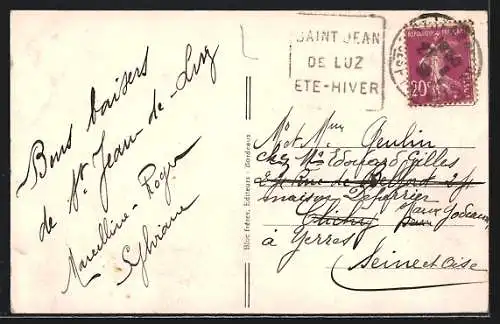 Bons baisers
de St Jean-de-Luz
Marcelline-Roger
SAINT JEAN
DE LUZ
ETE-HIVER
REPUBLIQUE FRANÇAISE
20c
POSTES
Bloc Frères, Editeurs - Bordeaux
Mr et Mme Geulin
chez Mr Edouard Gilles
24 Rue de Belfort
maison Deharrier
Clichy
à Yerres
Seine et Oise